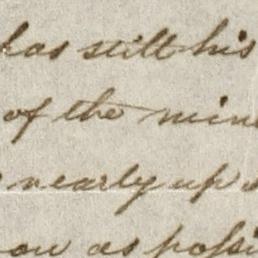 has still his
of the min
nearly up
ow as possi